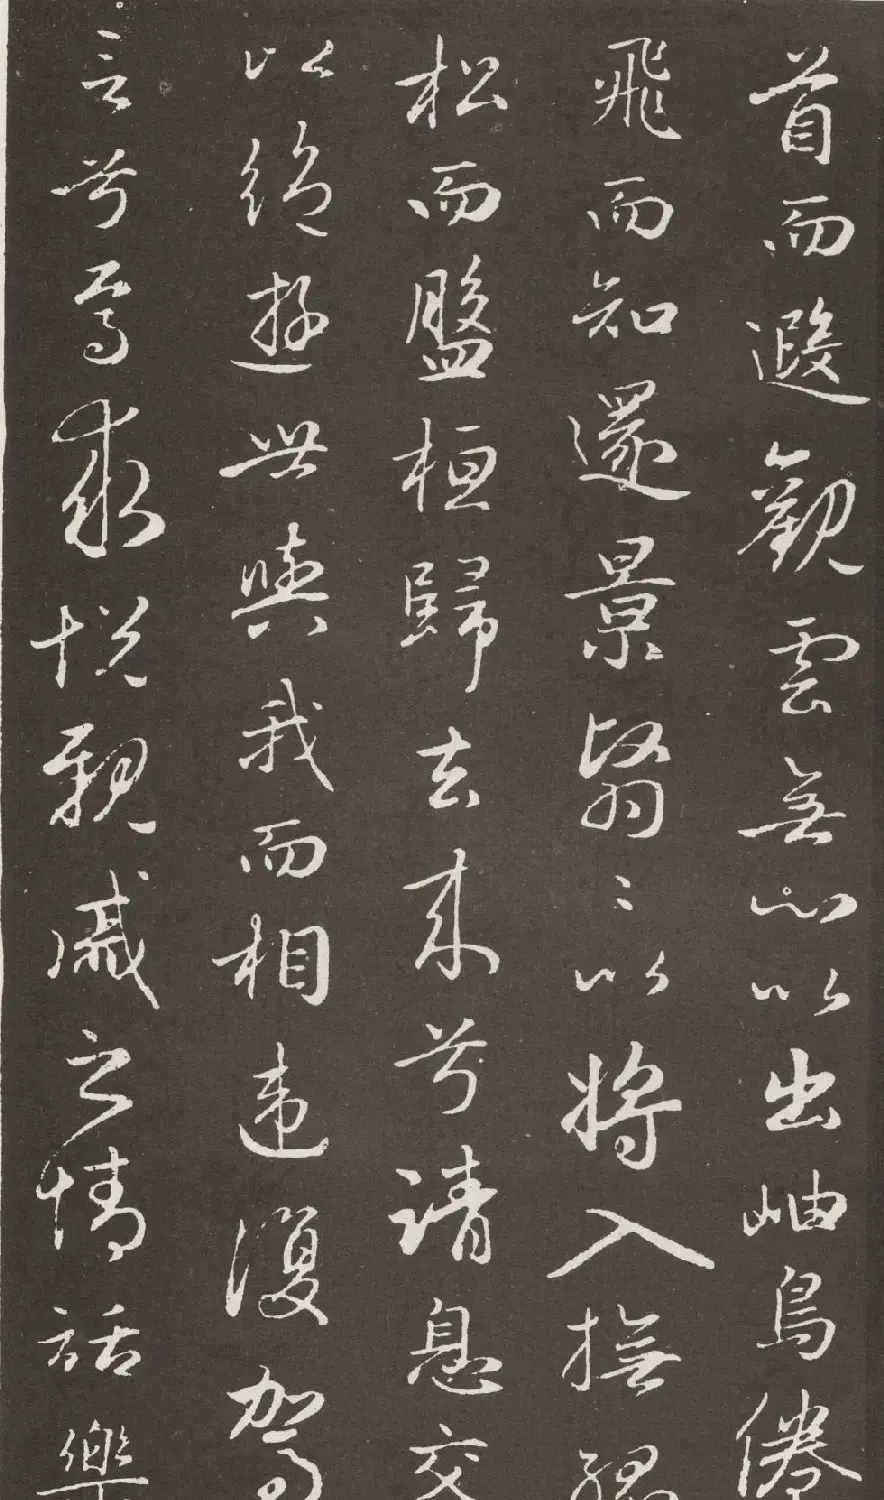 首而遐觀雲無心以出岫鳥倦
飛而知還景翳〻以將入撫孤
松而盤桓歸去來兮請息交
以絕遊世與我而相違復駕
言兮焉求悅親戚之情話樂